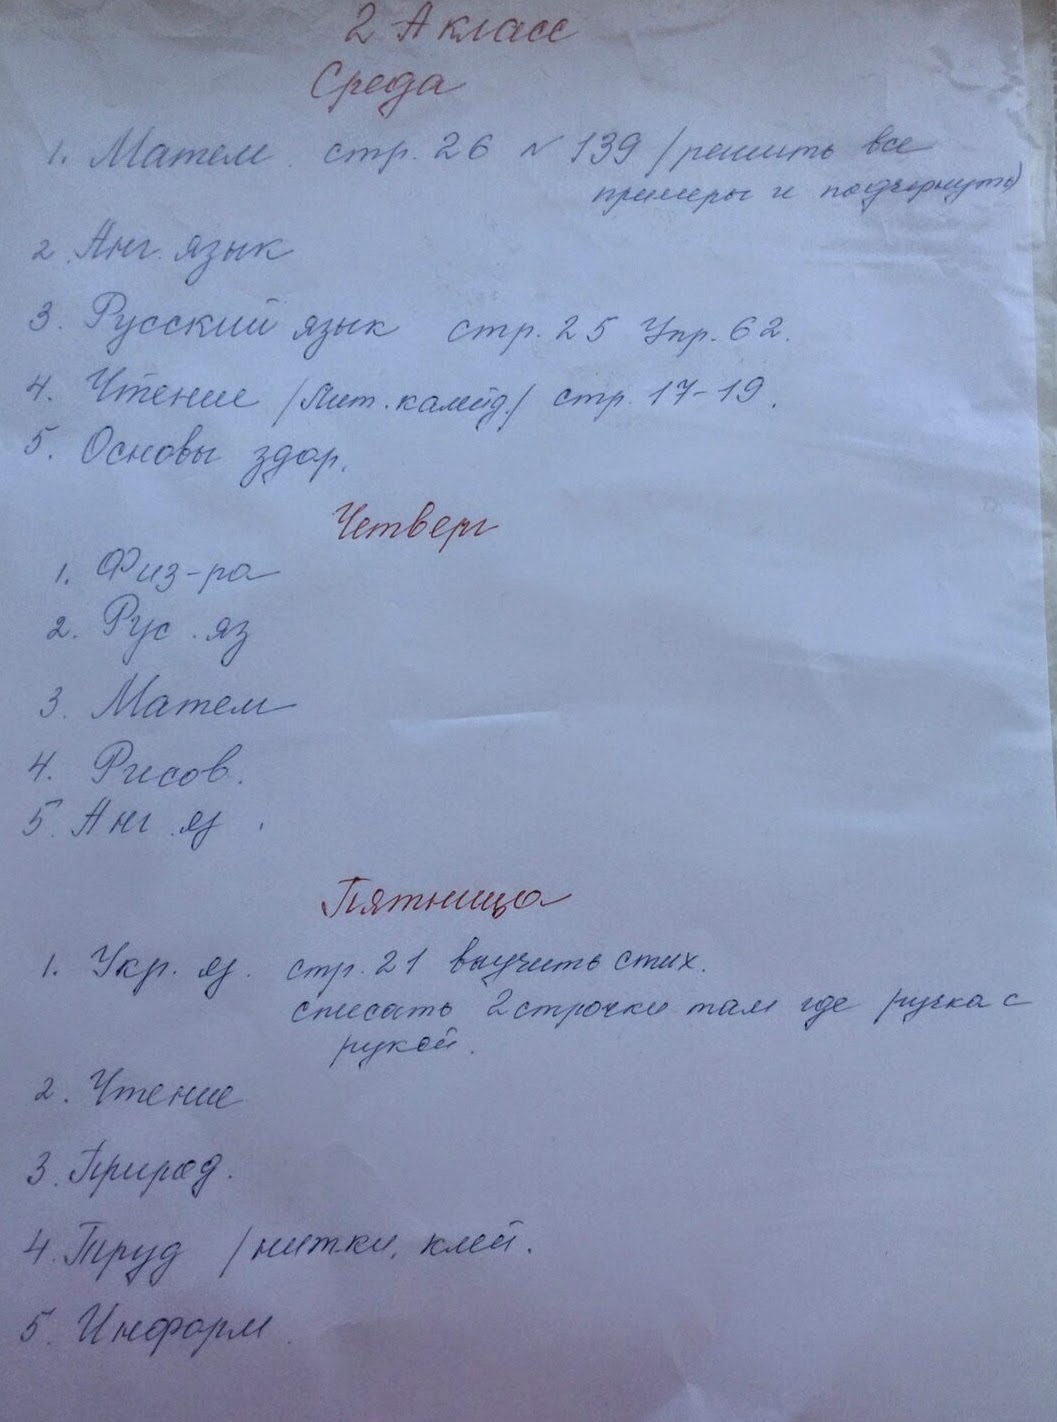 2 А класс
Среда
1. Матем. стр. 26 № 139 /решить все
примеры и подчеркнуть)
2. Анг. язык
3. Русский язык стр. 25 Упр. 62.
4. Чтение /Лит. калейд./ стр. 17-19.
5. Основы здор.
Четверг
1. Физ-ра
2. Рус. яз
3. Матем
4. Рисов.
5. Анг. яз.
Пятница
1. Укр. яз. стр. 21 выучить стих.
списать 2 строчки там где ручка с
рукой.
2. Чтение
3. Природ.
4. Труд /нитки, клей.
5. Информ.